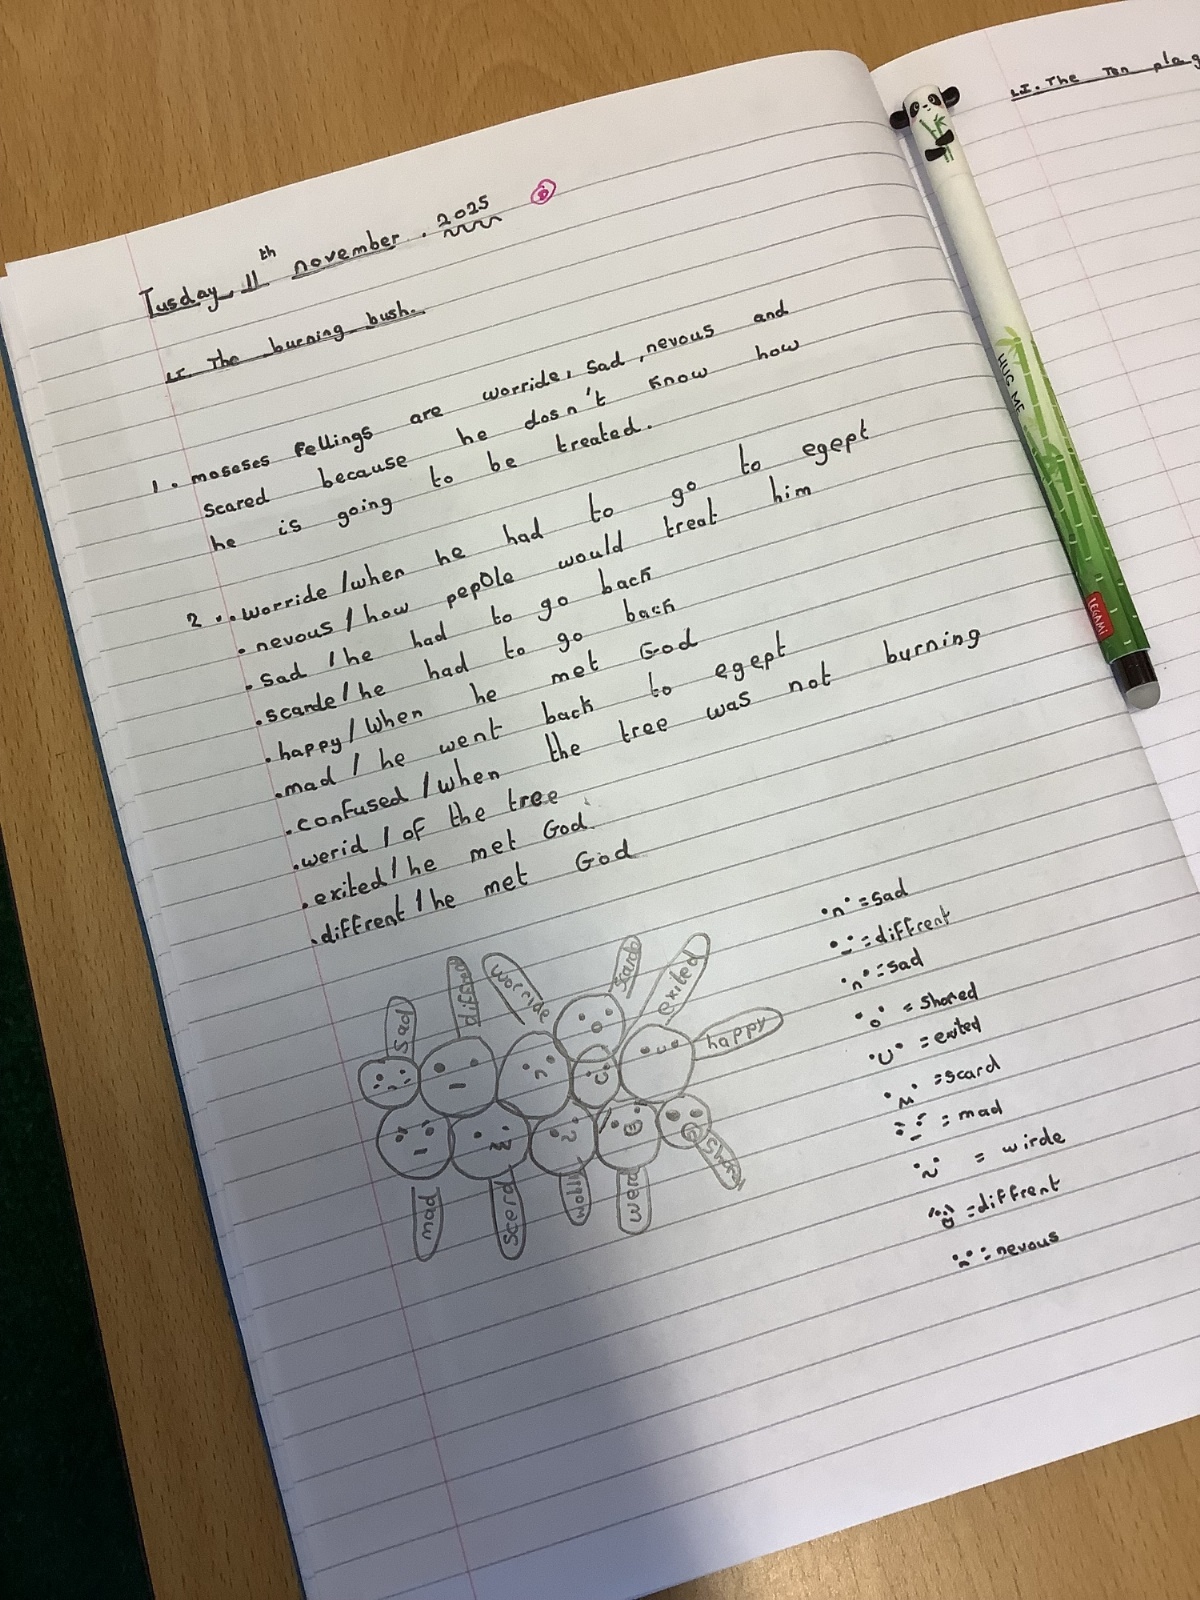 Tusday 11th november. 2025
LI. The burning bush.
1. moseses fellings are worride, sad, nevous and
scared because he dosn't know how
he is going to be treated.
2. . worride / when he had to go to egept
. nevous / how pepole would treat him
. sad / he had to go back
. scarde / he had to go back
. happy / when he met God
. mad / he went back to egept
. confused / when the tree was not burning
. werid / of the tree
. exited / he met God.
. diffrent / he met God
sad
worride
exited
happy
mad
scerd
= sad
= diffrent
= sad
= shored
= exited
= scard
= mad
= wirde
= diffrent
= nevous
LI. The Ten plag
HUG ME
LEGAMI